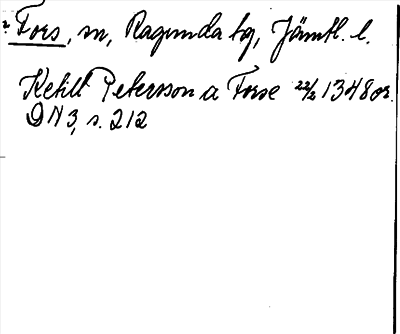 Fors, sn, Ragunda tg, Jämtl. l.
Ketill Petersson a Forse 22/2 1348 or.
DN 3, s. 212